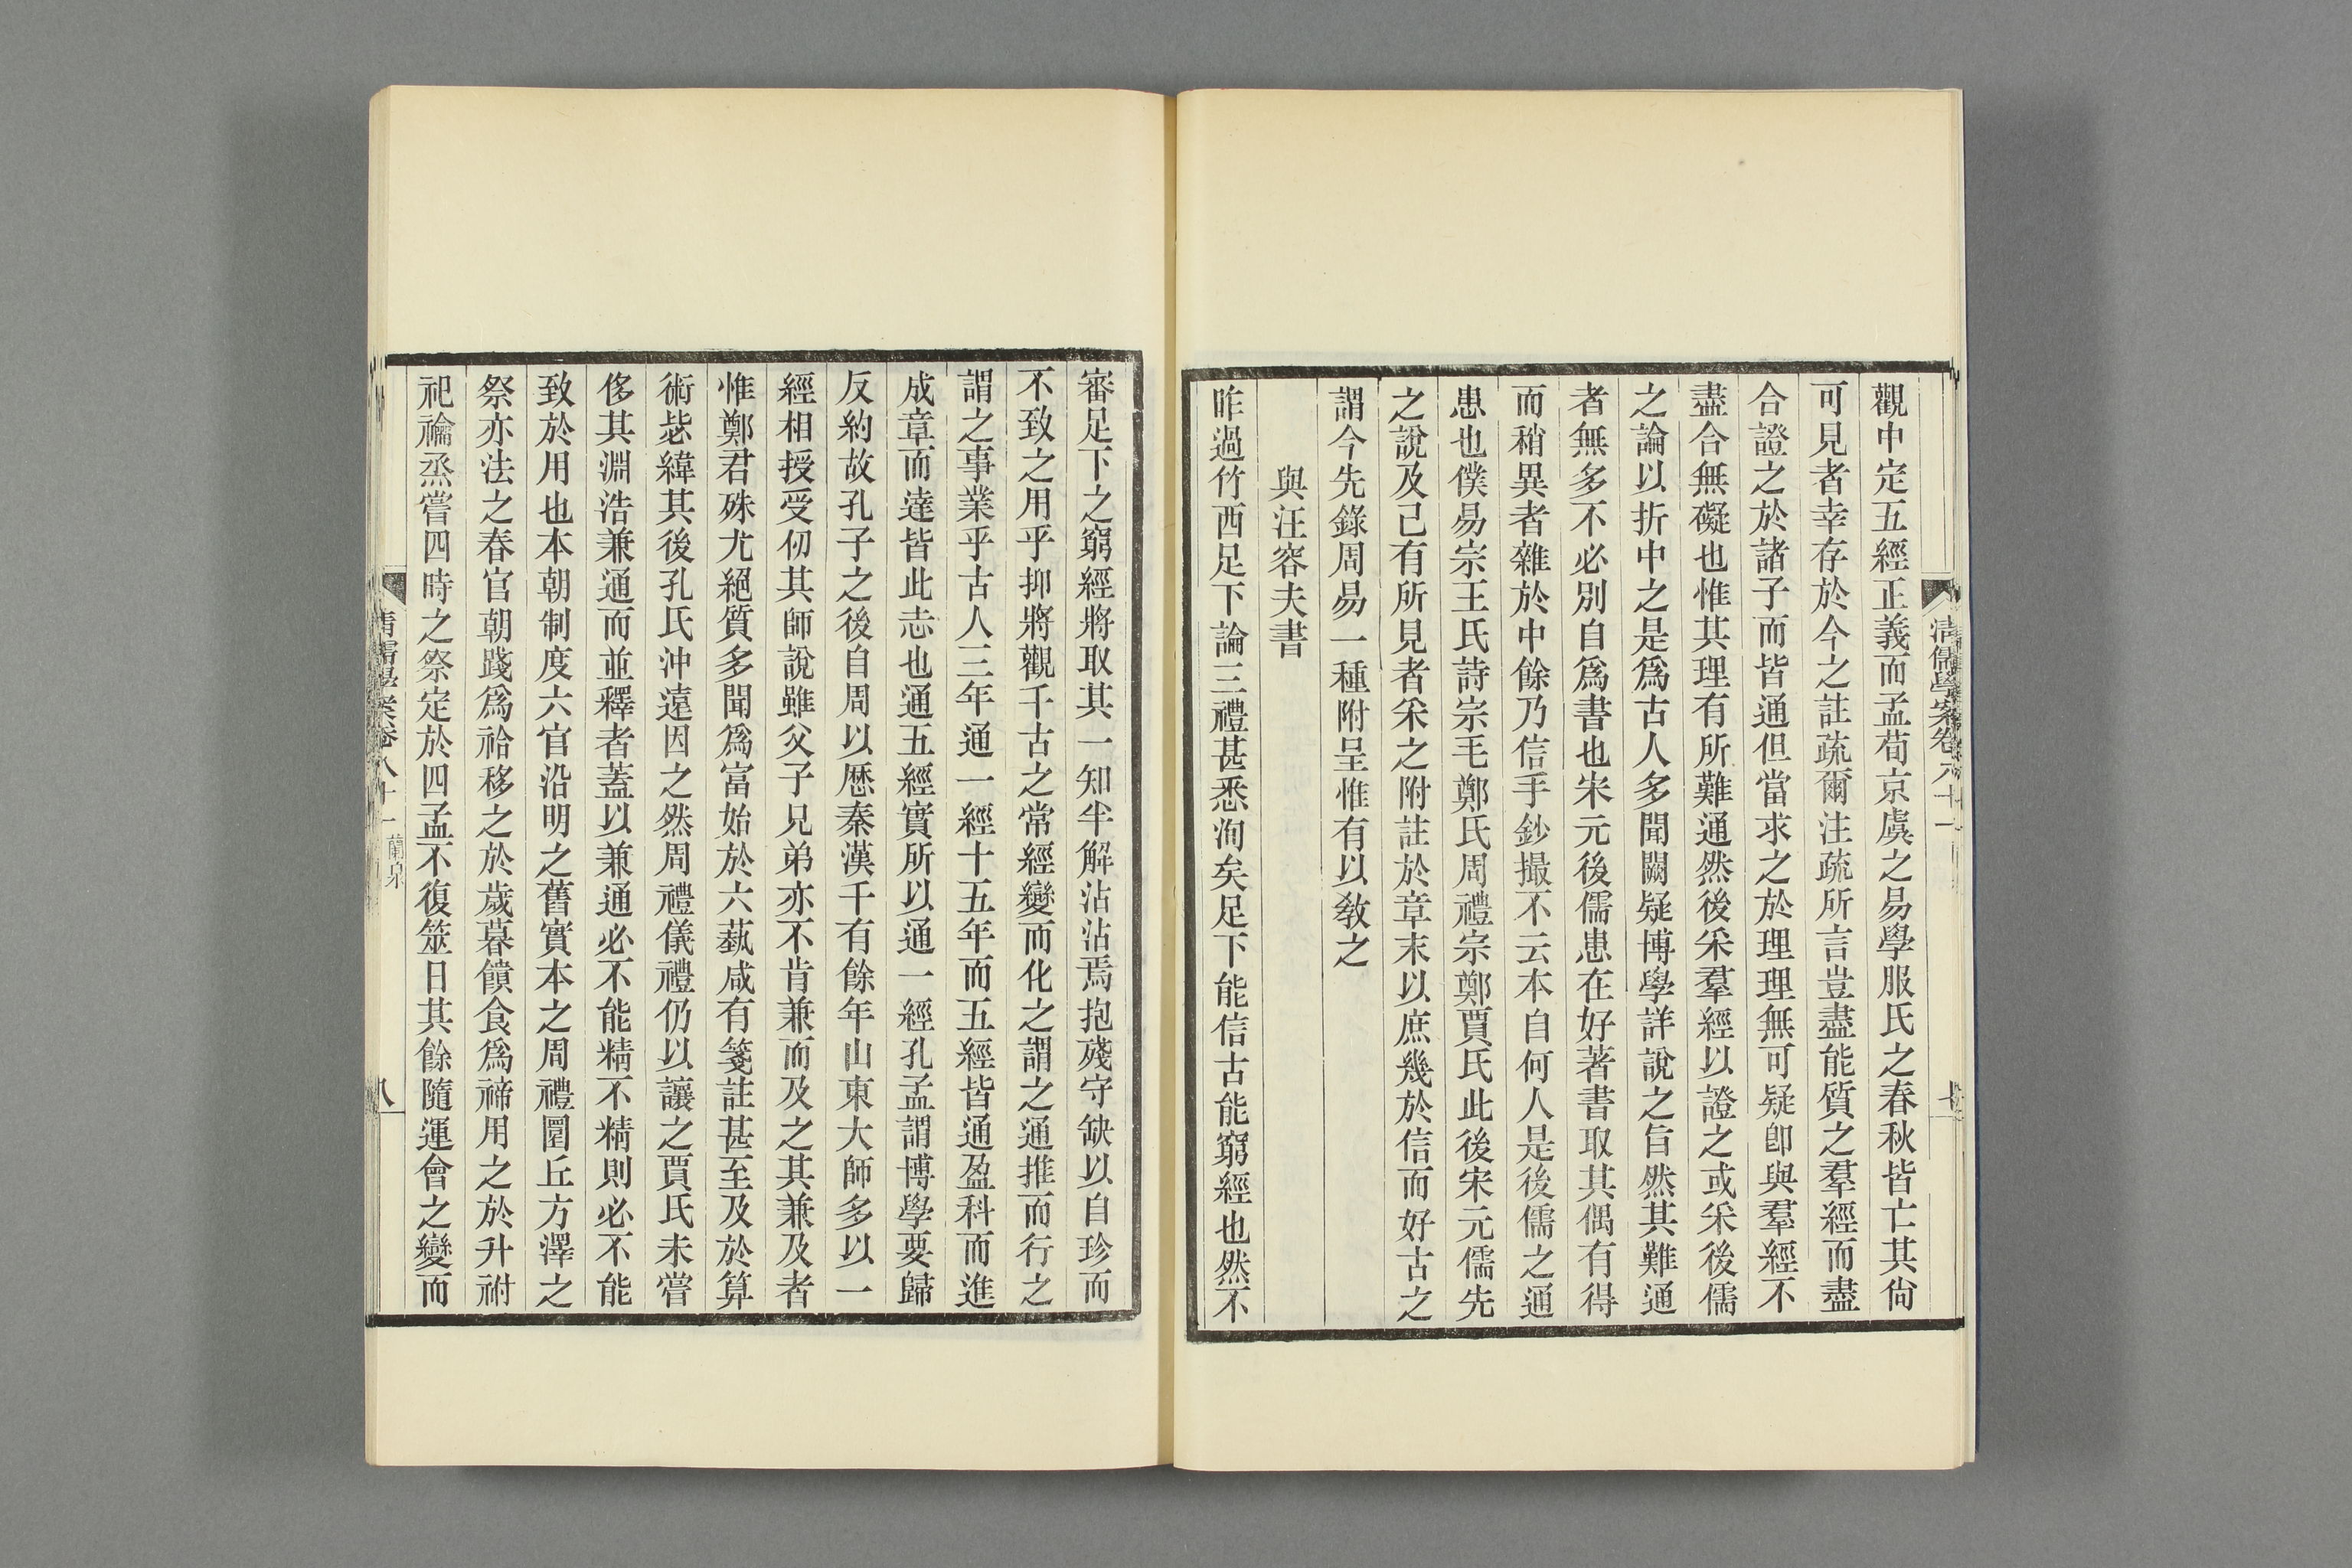 觀中定五經正義而孟荀京虞之易學服氏之春秋皆亡其尙
可見者幸存於今之註疏爾注疏所言豈盡能質之羣經而盡
合證之於諸子而皆通但當求之於理理無可疑卽與羣經不
盡合無礙也惟其理有所難通然後采羣經以證之或采後儒
之論以折中之是爲古人多聞闕疑博學詳說之旨然其難通
者無多不必別自爲書也宋元後儒患在好著書取其偶有得
而稍異者雜於中餘乃信手鈔撮不云本自何人是後儒之通
患也僕易宗王氏詩宗毛鄭氏周禮宗鄭賈氏此後宋元儒先
之說及己有所見者采之附註於章末以庶幾於信而好古之
謂今先錄周易一種附呈惟有以敎之
與汪容夫書
昨過竹西足下論三禮甚悉洵矣足下能信古能窮經也然不
審足下之窮經將取其一知半解沾沾焉抱殘守缺以自珍而
不致之用乎抑將觀千古之常經變而化之謂之通推而行之
謂之事業乎古人三年通一經十五年而五經皆通盈科而進
成章而達皆此志也通五經實所以通一經孔孟謂博學要歸
反約故孔子之後自周以歷秦漢千有餘年山東大師多以一
經相授受仞其師說雖父子兄弟亦不肯兼而及之其兼及者
惟鄭君殊尤絕質多聞爲富始於六蓺咸有箋註甚至及於算
術毖緯其後孔氏沖遠因之然周禮儀禮仍以讓之賈氏未嘗
侈其淵浩兼通而並釋者蓋以兼通必不能精不精則必不能
致於用也本朝制度六官沿明之舊實本之周禮圜丘方澤之
祭亦法之春官朝踐爲祫移之於歲暮饋食爲禘用之於升祔
祀禴烝嘗四時之祭定於四孟不復筮日其餘隨運會之變而
清儒學案卷八十一 蘭泉
八